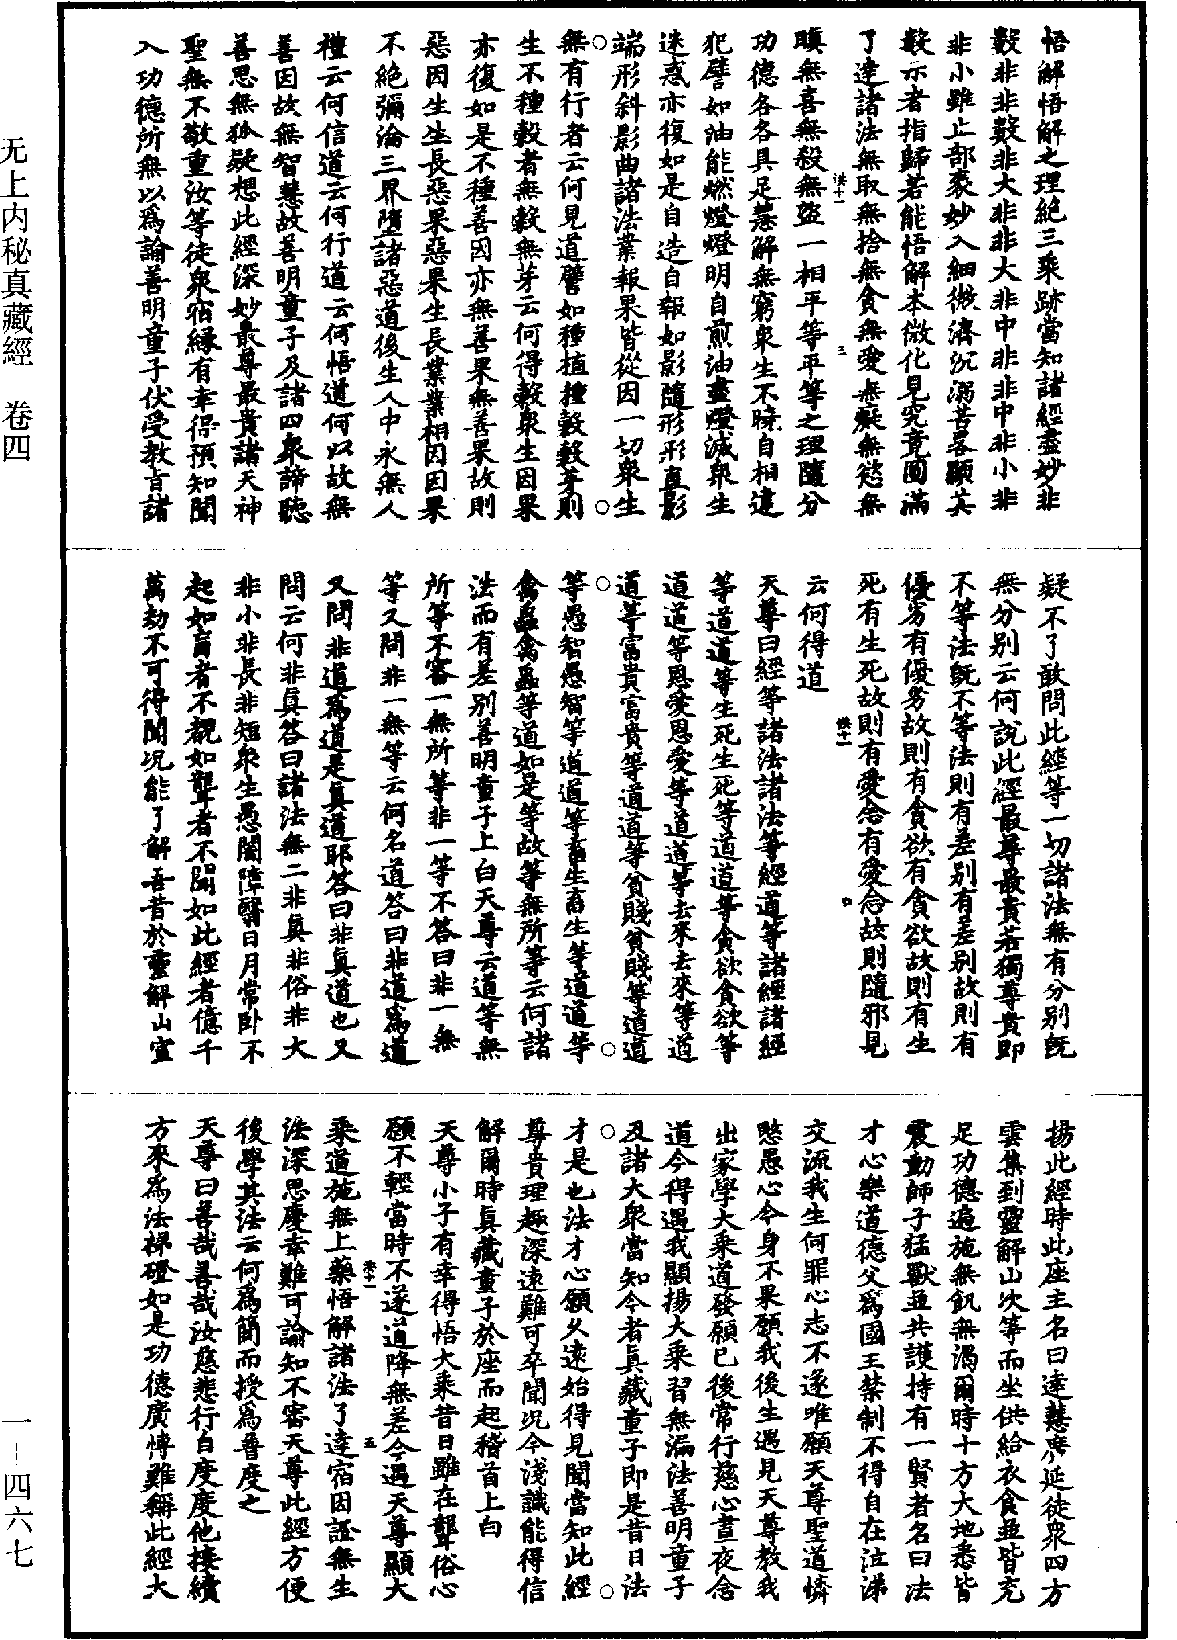 悟解悟解之理絕三乘跡當知諸經盡妙非
數非非數非大非非大非中非非中非小非
非小雖止部豪妙入細微濟沉溺苦畧顯其
數示者指歸若能悟解本微化見究竟圓滿
了達諸法無取無捨無貪無愛無癡無慾無
瞋無喜無殺無盜一相平等平等之理隨分
功德各各具足慧解無窮衆生不曉自相違
犯譬如油能燃燈燈明自煎油盡燈滅衆生
迷惑亦復如是自造自報如影隨形形直影
端形斜影曲諸法業報果皆從因一切衆生
無有行者云何見道譬如種植種穀穀芽則
生不種穀者無穀無芽云何得穀衆生因果
亦復如是不種善因亦無善果無善果故則
惡因生生長惡果惡果生長業業相因因果
不絕彌淪三界墮諸惡道後生人中永無人
禮云何信道云何行道云何悟道何以故無
善因故無智慧故善明童子及諸四衆諦聽
善思無狐疑想此經深妙最尊最貴諸天神
聖無不敬重汝等徒衆宿緣有幸得預知聞
入功德所無以爲論善明童子伏受教言諸
疑不了敢問此經等一切諸法無有分別旣
無分別云何說此經最尊最貴若獨尊貴即
不等法旣不等法則有差別有差別故則有
優劣有優劣故則有貪欲有貪欲故則有生
死有生死故則有愛念有愛念故則隨邪見
云何得道
天尊曰經等諸法諸法等經道等諸經諸經
等道道等生死生死等道道等貪欲貪欲等
道道等恩愛恩愛等道道等去來去來等道
道等富貴富貴等道道等貧賤貧賤等道道
等愚智愚智等道道等畜生畜生等道道等
禽蟲禽蟲等道如是等故等無所等云何諸
法而有差別善明童子上白天尊云道等無
所等不審一無所等非一等不答曰非一無
等又問非一無等云何名道答曰非道爲道
又問非道爲道是真道耶答曰非真道也又
問云何非真答曰諸法無二非真非俗非大
非小非長非短衆生愚闇障翳日月常卧不
起如盲者不覩如聾者不聞如此經者億千
萬劫不可得聞況能了解吾昔於靈解山宣
揚此經時此座主名曰達慧廣延徒衆四方
雲集到靈解山次等而坐供給衣食並皆充
足功德遍施無飢無渴爾時十方大地悉皆
震動師子猛獸並共護持有一賢者名曰法
才心樂道德父爲國王禁制不得自在泣涕
交流我生何罪心志不遂唯願天尊聖道憐
愍愚心今身不果願我後生遇見天尊教我
出家學大乘道發願已後常行慈心晝夜念
道今得遇我顯揚大乘習無漏法善明童子
及諸大衆當知今者真藏童子即是昔日法
才是也法才心願久遠始得見聞當知此經
尊貴理趣深遠難可卒聞況今淺識能得信
解爾時真藏童子於座而起稽首上白
天尊小子有幸得悟大乘昔日雖在聾俗心
願不輕當時不遂道降無差今遇天尊顯大
乘道施無上藥悟解諸法了達宿因證無生
法深思慶幸難可論知不審天尊此經方便
後學其法云何爲簡而授爲普度之
天尊曰善哉善哉汝慈悲行自度度他接續
方來爲法梯磴如是功德廣博難稱此經大
无上内秘真藏經　卷四
一——四六七